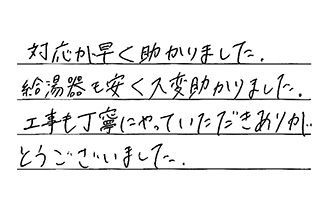 対応が早く助かりました.
給湯器も安く大変助かりました.
工事も丁寧にやっていただきありが
とうございました.